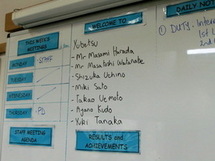 THIS WEEK'S
MEETINGS
MONDAY
STAFF
TUESDAY
WEDNESDAY
THURSDAY
PD
FRIDAY
STAFF MEETING
AGENDA
WELCOME TO
Yobetsu
- Mr Masami Harada
- Mr Masatoshi Watanabe
- Shizuka Uchino
- Miki Sato
- Takao Uemoto
- Ayano Kudo
- Yuki Tanaka
RESULTS and
ACHIEVEMENTS
DAILY NOT
① DUTY -
1st
2nd